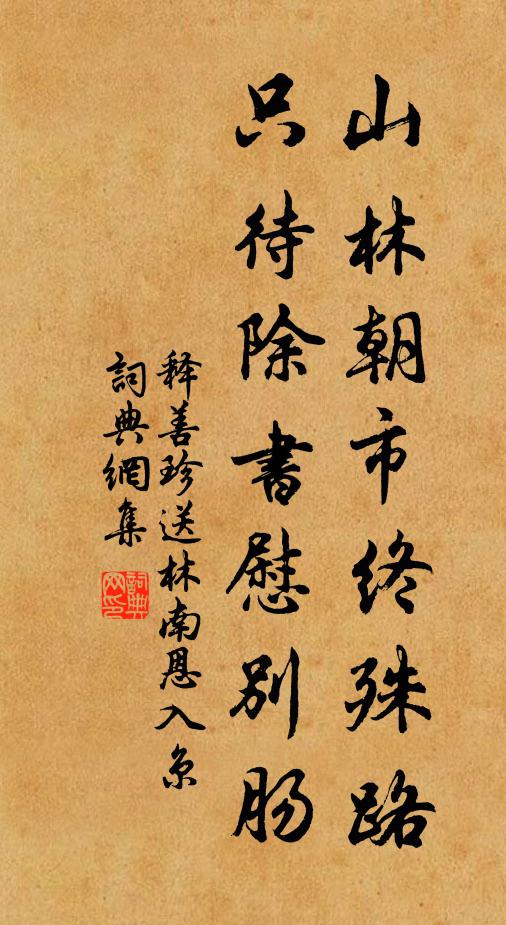 山林朝市终殊路
只待除書慰别肠
释善珍送林南恩入京
詞典網集
詞典网印